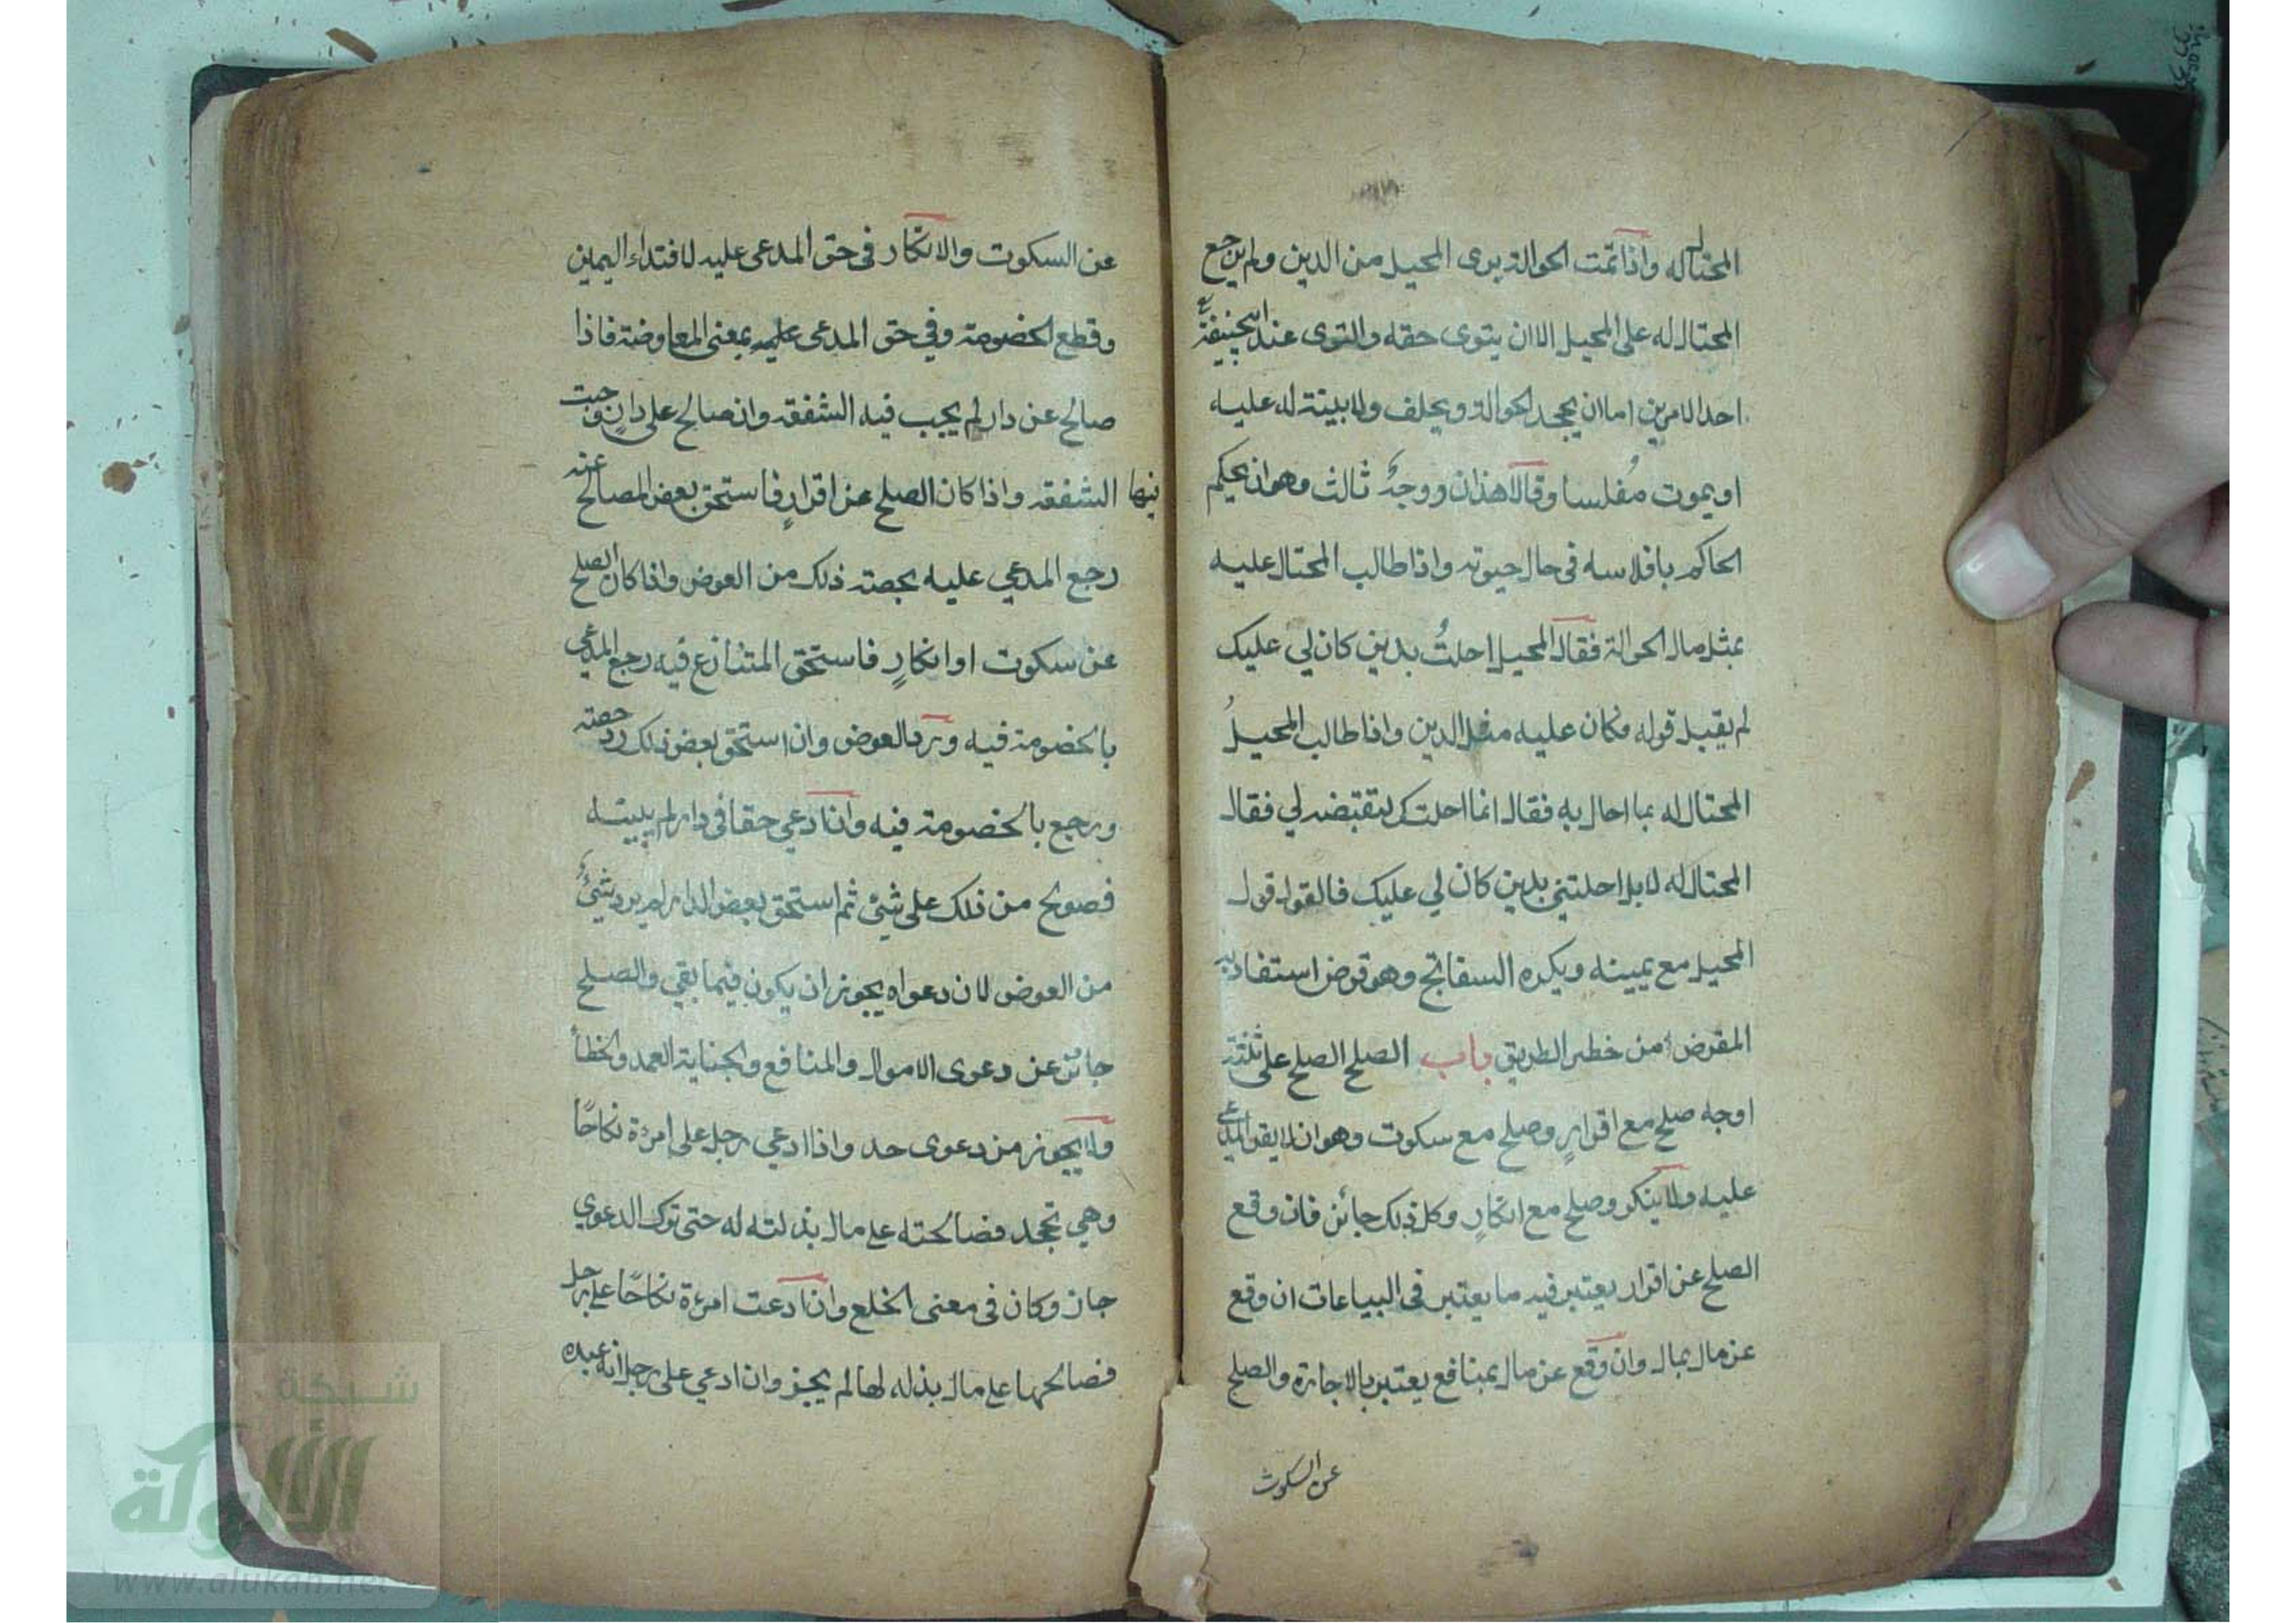 المحتال له واذا تمت الحوالة يرى المحيل من الدين ولم يرجع
المحتال له على المحيل الا ان يتوى حقه والتوى عند ابيحنيفة
احد الامرين اما ان يجحد الحوالة ويحلف ولا بينة له عليه
او يموت مُفلسا وقالا هذان ووجهٌ ثالث وهو ان يحكم
الحاكم بافلاسه في حال حيوته واذا طالب المحتال عليه
بمثل مال الحوالة فقال المحيل احلتُ بدين كان لي عليك
لم يقبل قوله وكان عليه مثل الدين واذا طالب المحيلُ
المحتال له بما احال به فقال انما احلتك لتقتبضه لي فقال
المحتال له لا بل احلتني بدين كان لي عليك فالقول قول
المحيل مع يمينه ويكره السفاتج وهو قرض استفاد به
المقرض امن خطر الطريق باب الصلح الصلح على ثلثة
اوجه صلح مع اقرارٍ وصلح مع سكوت وهو ان لا يقر المدعى
عليه ولا ينكر وصلح مع انكارٍ وكل ذلك جائن فان وقع
الصلح عن اقرار يعتبر فيه ما يعتبر في البياعات ان وقع
عن مال بمال وان وقع عن مال بمنافع يعتبر بالاجارة والصلح
عن السكوت
عن السكوت والانكار في حق المدعى عليه لافتداء اليمين
وقطع الخصومة وفي حق المدعى عليه بمعنى المعاوضة فاذا
صالح عن دار لم يجب فيه الشفقه وان صالح على دارٍ وجبت
فيها الشفقه واذا كان الصلح عن اقرارٍ فاستحق بعض المصالح عنه
رجع المدعي عليه بحصة ذلك من العوض واذا كان الصلح
عن سكوت او انكارٍ فاستحق المتنازع فيه رجع المدعي
بالخضومة فيه ويرد العوض وان استحق بعض ذلك رد حصته
ورجع بالخصومة فيه وان ادعي حقا في دار لم يبيته
فصولح من ذلك على شئ ثم استحق بعض الدار لم يرد شيئٌ
من العوض لان دعواه يجوز ان يكون فيما بقي والصلح
جائز عن دعوى الاموال والمنافع والجناية العمد والخطأ
ولا يجوز من دعوى حد واذا ادعي رجل على امرءة نكاحًا
وهي تجحد فصالحته على مال بذلته له حتى ترك الدعوي
جاز وكان في معنى الخلع وان ادعت امرءة نكاحًا على رجل
فصالحها على مال بذله لها لم يجز وان ادعي على رجل انه عبده
شبكة
الألوكة
www.alukah.net